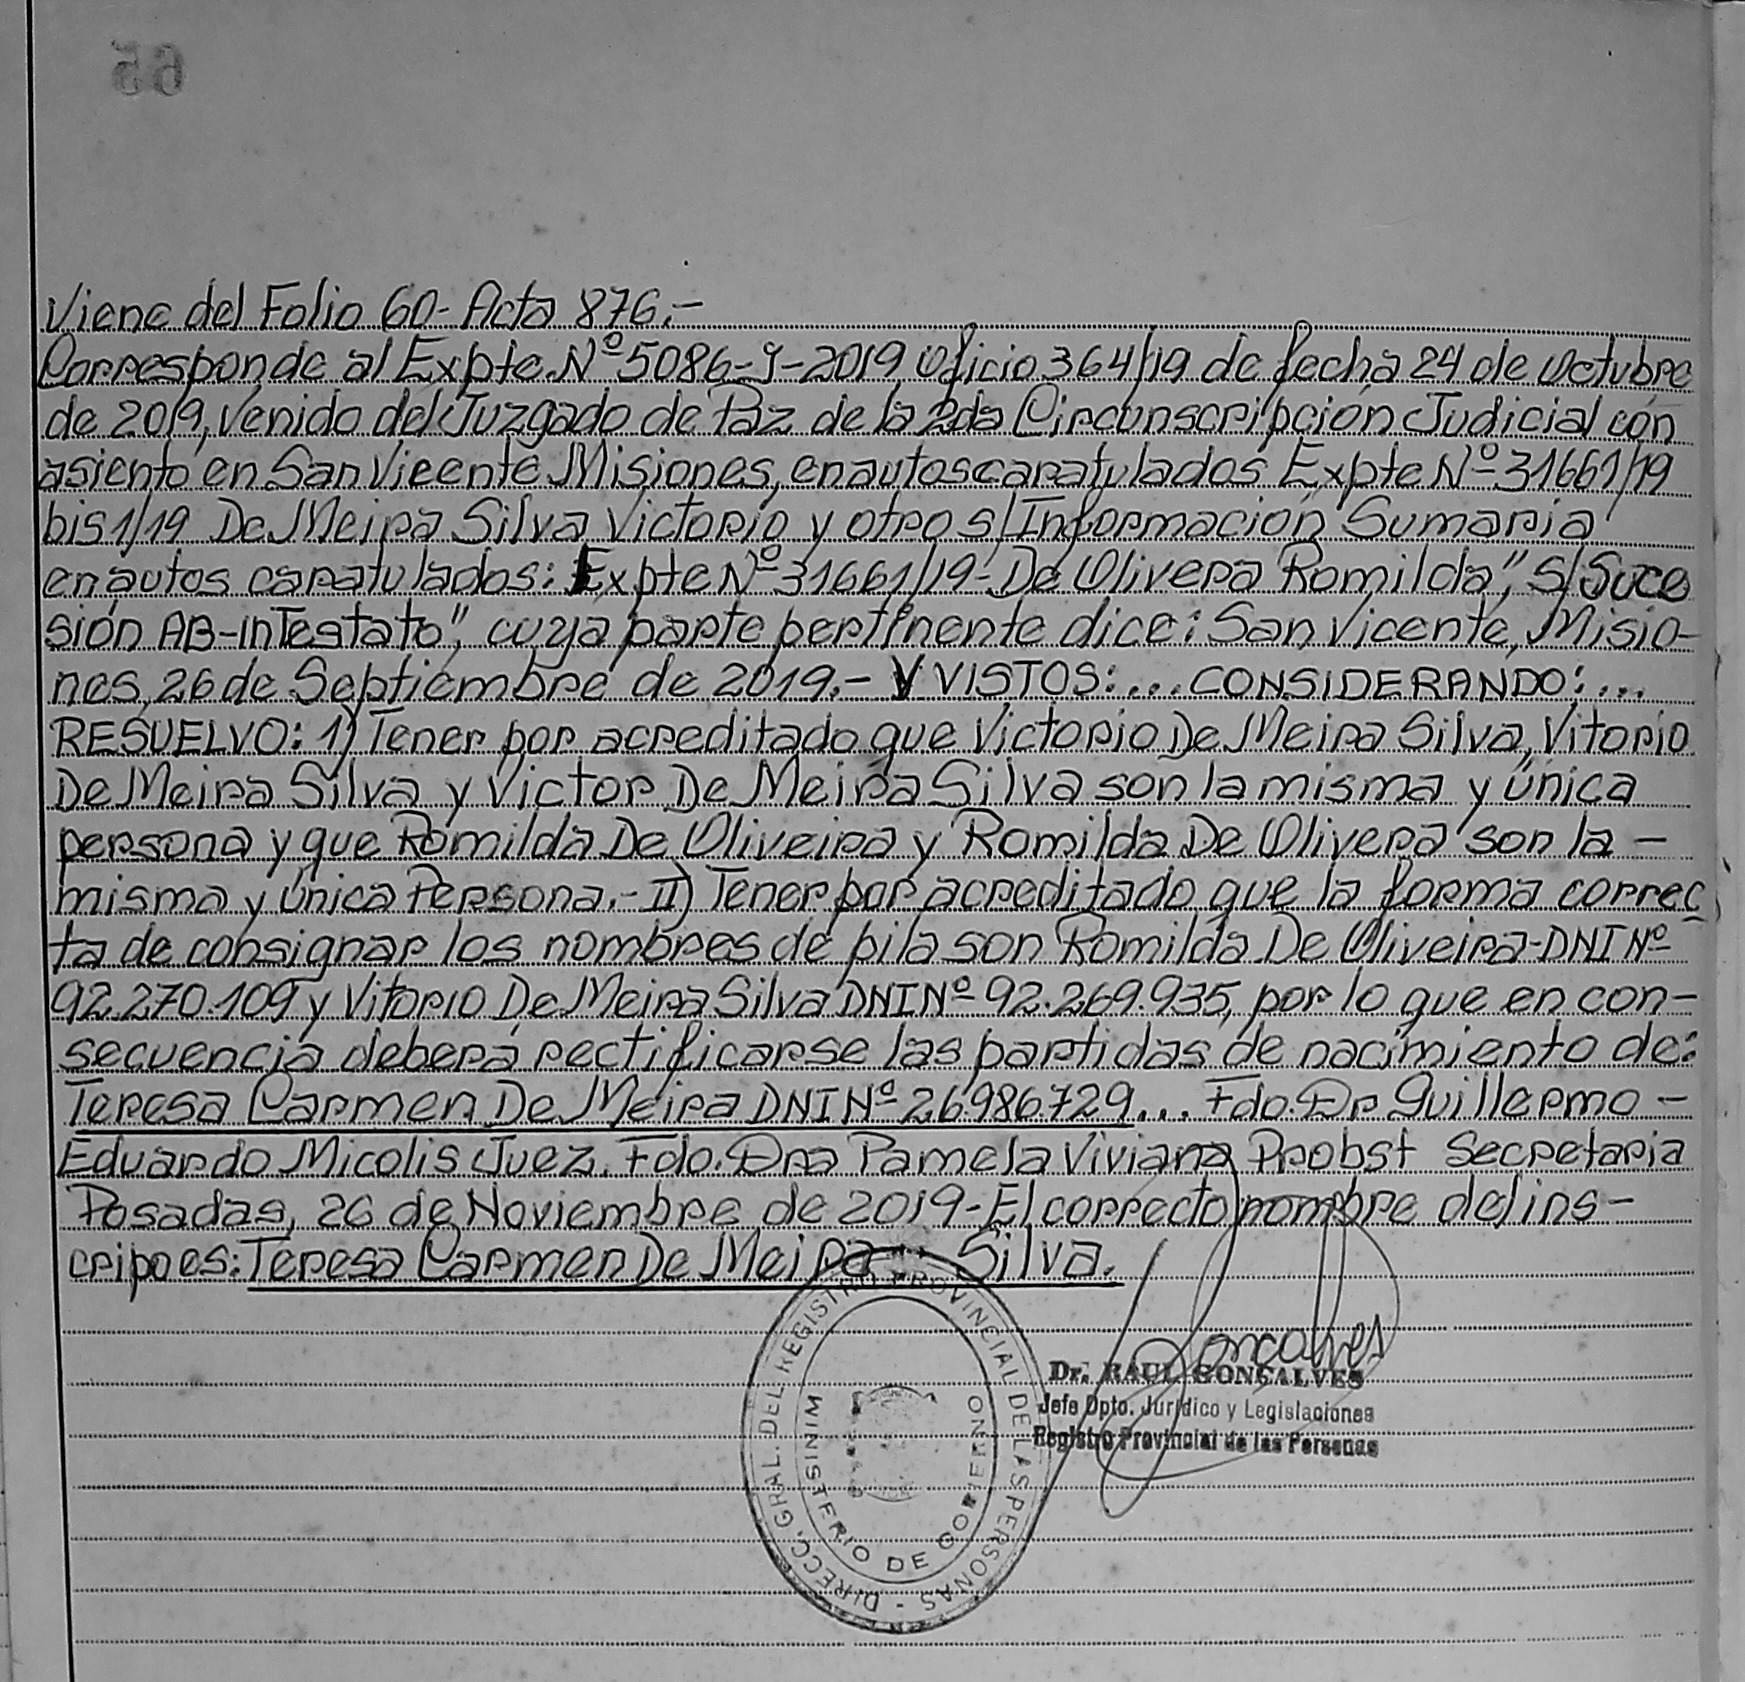 65
Viene del Folio 60- Acta 876.-
Corresponde al Expte. Nº 5086-J-2019, Oficio 364/19 de fecha 24 de Octubre
de 2019, venido del Juzgado de Paz de la 2da Circunscripción Judicial con
asiento en San Vicente Misiones, en autos caratulados Expte Nº 31661/19
bis 1/19 De Meira Silva Victorio y otro s/Información Sumaria
en autos caratulados: Expte Nº 31661/19- De Olivera Romilda", S/Suce
sión AB-inTestato", cuya parte pertinente dice: San Vicente, Misio-
nes, 26 de Septiembre de 2019.- Y VISTOS:... CONSIDERANDO:...
RESUELVO: 1) Tener por acreditado que Victorio De Meira Silva, Vitorio
De Meira Silva y Victor De Meira Silva son la misma y única
persona y que Romilda De Oliveira y Romilda De Olivera son la -
misma y única Persona.- II) Tener por acreditado que la forma correc
ta de consignar los nombres de pila son Romilda De Oliveira-DNI Nº
92.270.109 y Vitorio De Meira Silva DNI Nº 92.269.935, por lo que en con-
secuencia deberá rectificarse las partidas de nacimiento de:
Teresa Carmen De Meira DNI Nº 26.986.729... Fdo. Dr Guillermo -
Eduardo Micolis Juez. Fdo. Dra Pamela Viviana Probst Secretaria
Posadas, 26 de Noviembre de 2019-El correcto nombre del ins-
cripo es: Teresa Carmen De Meira Silva.
DIRECC. GRAL. DEL REGISTRO PROVINCIAL DE LAS PERSONAS -
MINISTERIO DE GOBIERNO
Goncalves
Dr. RAUL GONSALVES
Jefe Dpto. Jurídico y Legislaciones
Registro Provincial de las Personas